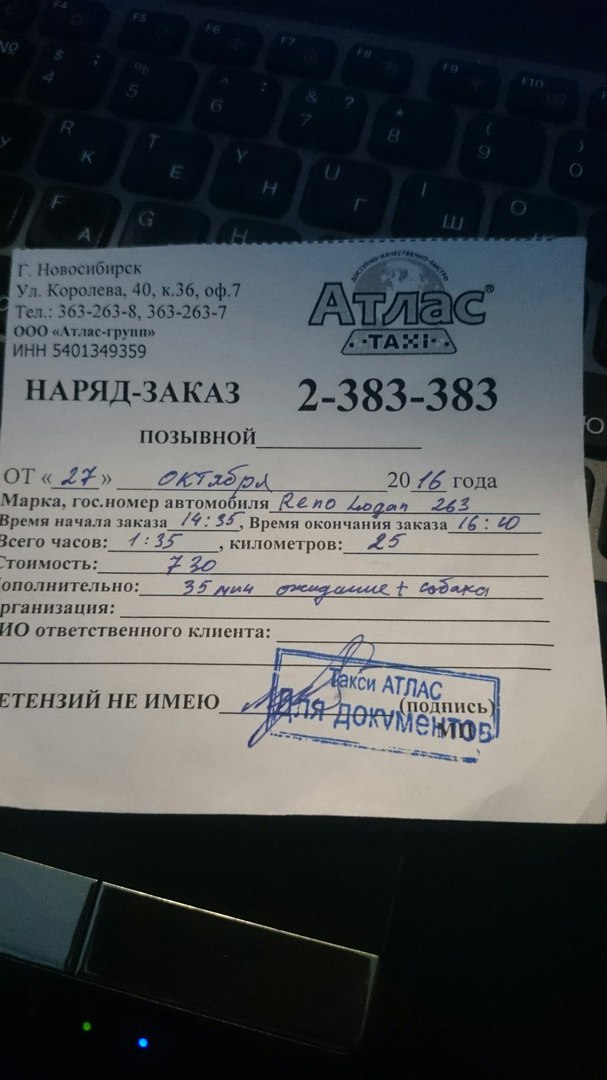 F4 F5 F6 F7 F8 F9 F10
№ $ ; 4 % 5 ^ : 6 & ? 7 * 8 ( 9 ) 0
R К T Е Y Н U Г I Ш O
F А G H
Г. Новосибирск
Ул. Королева, 40, к.36, оф.7
Тел.: 363-263-8, 363-263-7
ООО «Атлас-групп»
ИНН 5401349359
ДОСТУПНО-КАЧЕСТВЕННО-БЫСТРО
Атлас®
TAXI
НАРЯД-ЗАКАЗ 2-383-383
ПОЗЫВНОЙ
ОТ «27» октября 2016 года
Марка, гос.номер автомобиля Reno Logan 263
Время начала заказа 14:35, Время окончания заказа 16:10
Всего часов: 1:35, километров: 25
Стоимость: 730
ополнительно: 35 мин ожидание + собака
рганизация:
ИО ответственного клиента:
ЕТЕНЗИЙ НЕ ИМЕЮ (подпись)
МП
Такси АТЛАС
ДЛЯ ДОКУМЕНТОВ